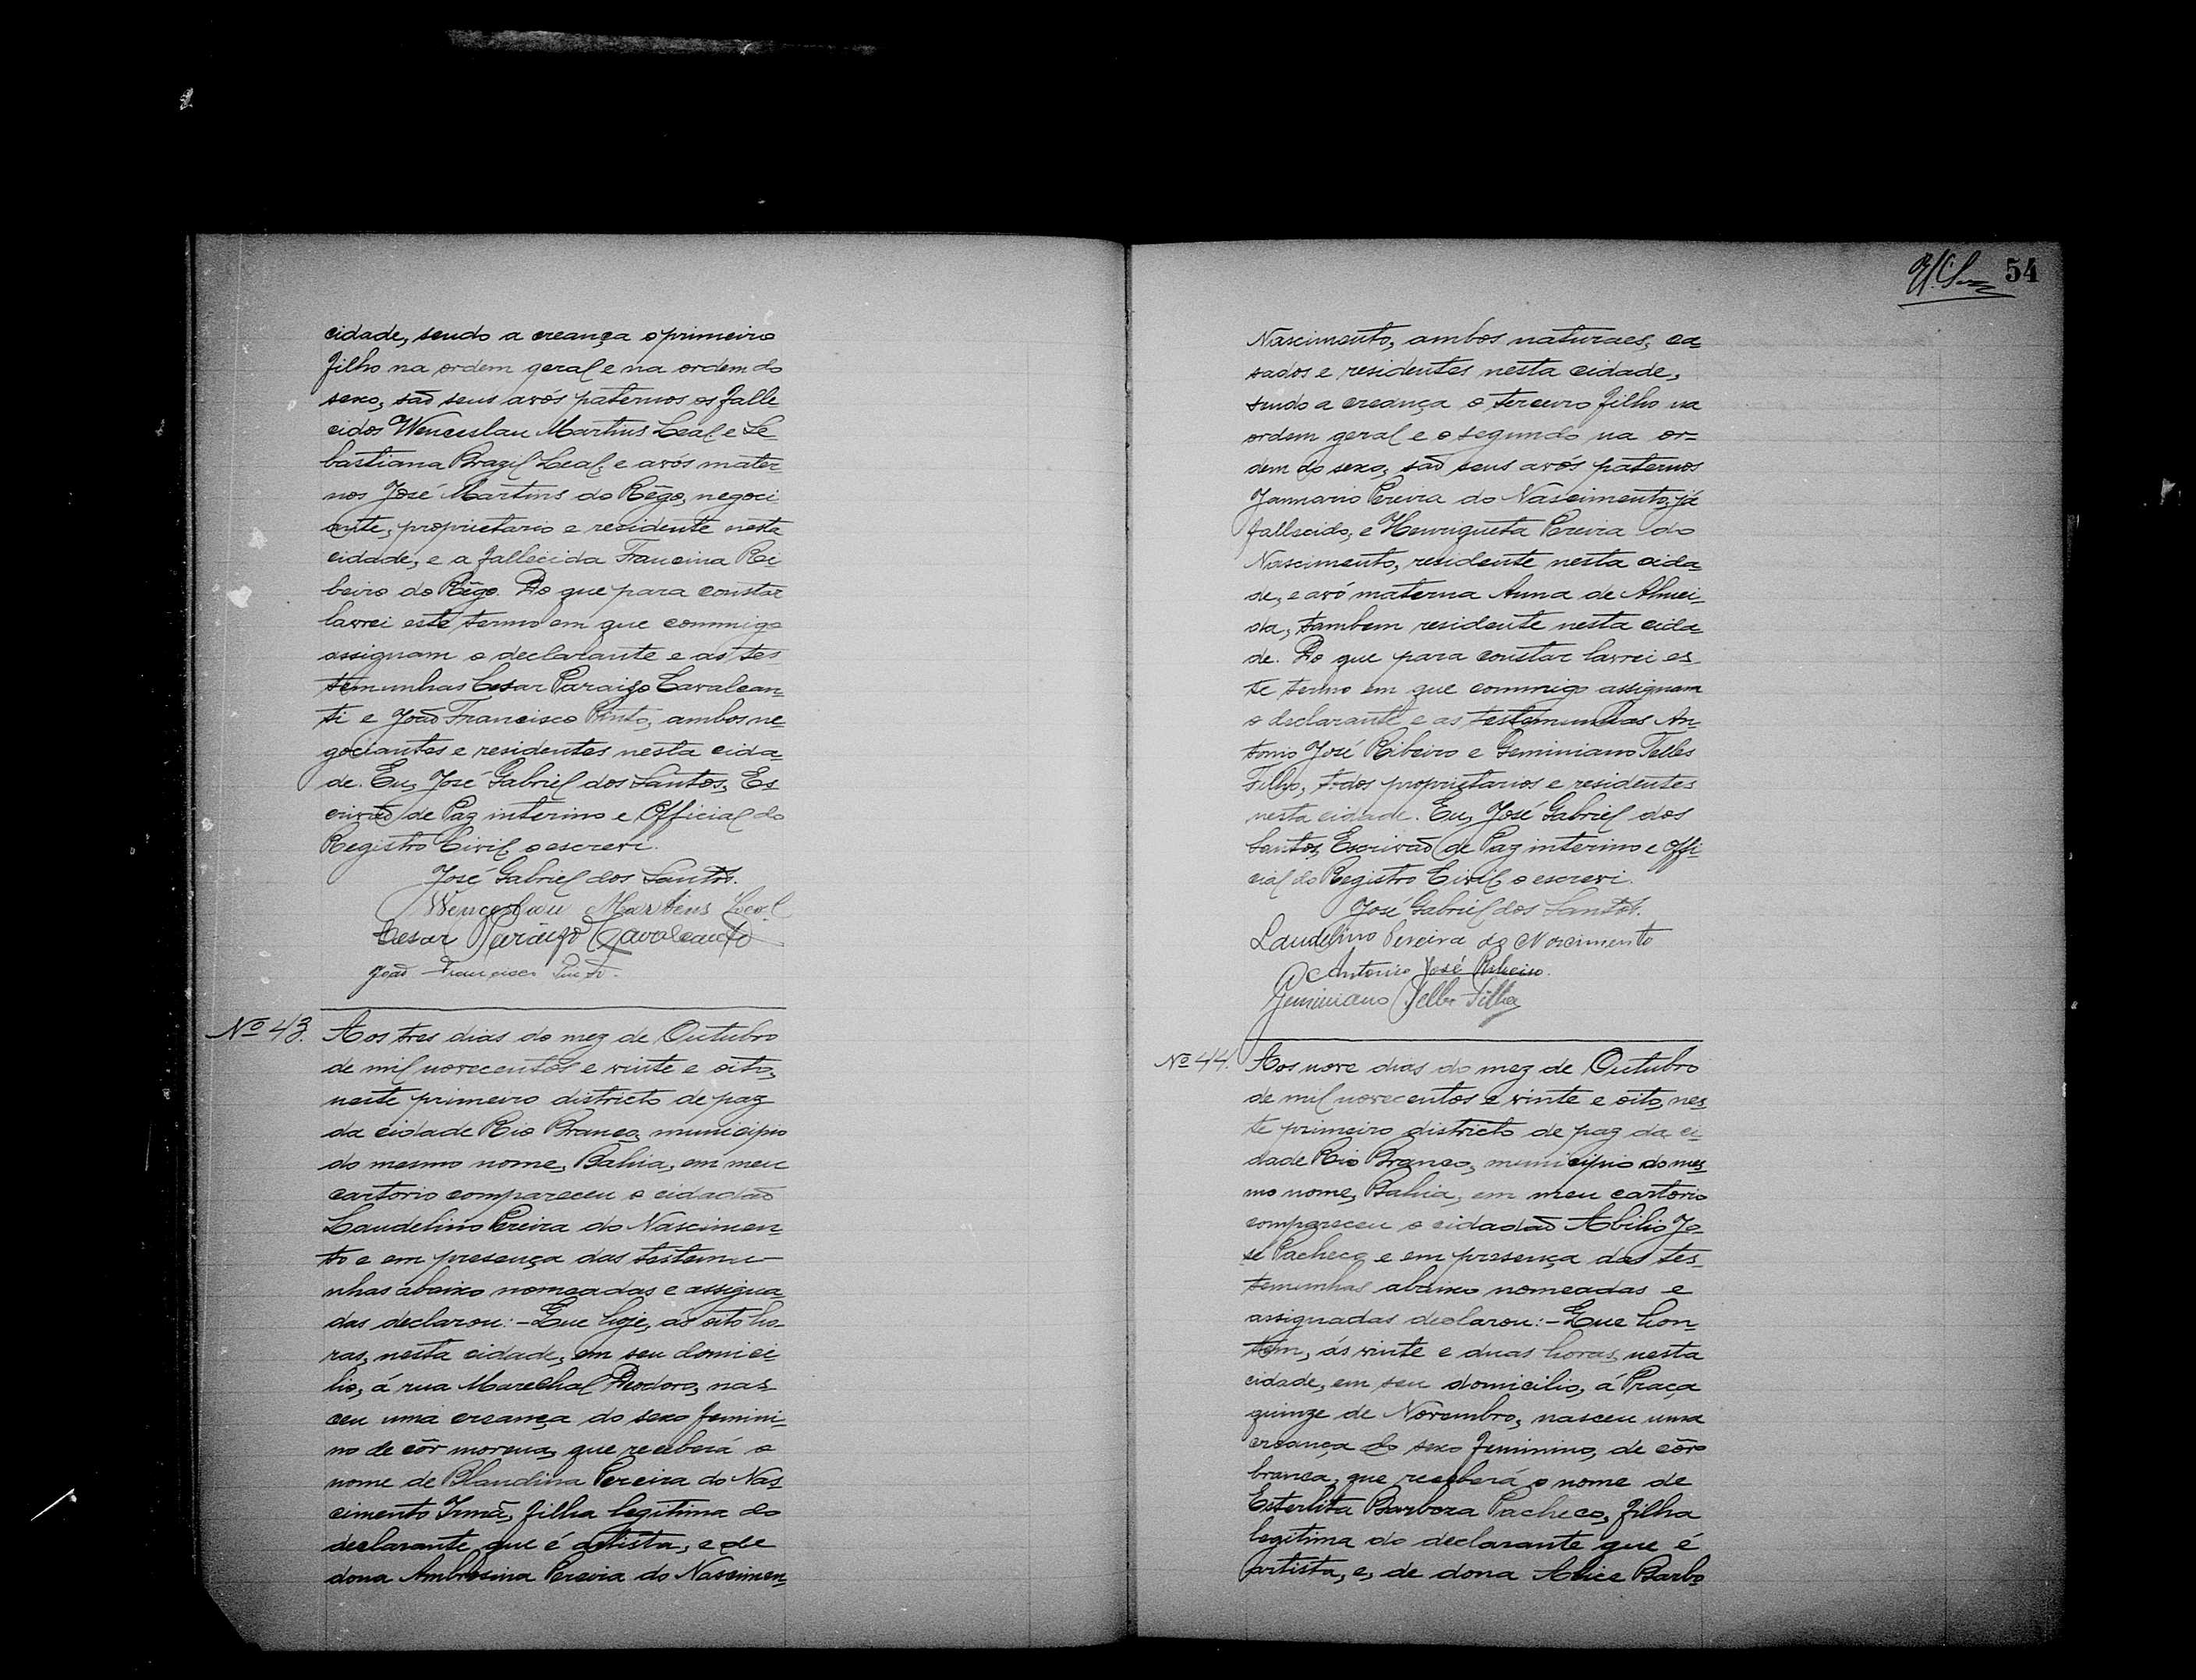 cidade, sendo a creança o primeiro
filho na ordem geral e na ordem do
sexo, saõ seus avós paternos os falle
cidos Wenceslau Martins Leal e Se
bastiana Brazil Leal; e avós mater
nos José Martins do Rêgo, negoci
ante, proprietario e residente nesta
cidade, e a fallecida Francina Ri
beiro do Rêgo. Do que para constar
lavrei este termo em que commigo
assignam o declarante e as tes
temunhas Cesar Paraizo Cavalcan-
ti e Joaõ Francisco Pinto, ambos ne
gociantes e residentes nesta cida-
de. Eu, José Gabriel dos Santos, Es
crivaõ de Paz interino e Official do
Registro Civil o escrevi.
José Gabriel dos Santos.
Wenceslau Martins Leal
Cesar Paraizo Cavalcanti
Joaõ Francisco Pinto.
No 43. Aos tres dias do mez de Outubro
de mil novecentos e vinte e oito,
neste primeiro districto de paz
da cidade Rio Branco, municipio
do mesmo nome, Bahia, em meu
cartorio compareceu o cidadaõ
Laudelino Pereira do Nascimen-
to e em presença das testemu-
nhas abaixo nomeadas e assigna-
das declarou:-Que hoje, ás oito ho-
ras, nesta cidade, em seu domici-
lio, á rua Marechal Deodoro, nas-
ceu uma creança do sexo femini-
no de côr morena, que receberá o
nome de Blandina Pereira do Nas-
cimento Irmã, filha legitima do
declarante que é artista, e de
dona Ambrosina Pereira do Nascimen-
54
Nascimento, ambos naturaes, ca-
sados e residentes nesta cidade,
sendo a creança o terceiro filho na
ordem geral e o segundo na or-
dem do sexo; saõ seus avós paternos
Januario Pereira do Nascimento, já
fallecido, e Henriqueta Pereira do
Nascimento, residente nesta cida-
de, e avó materna Anna de Almei-
da, tambem residente nesta cida-
de. Do que para constar lavrei es-
te termo em que commigo assignam
o declarante e as testemunhas An-
tonio José Ribeiro e Geminiano Telles
Filho, todos proprietarios e residentes
nesta cidade. Eu, José Gabriel dos
Santos, Escrivaõ de Paz interino e Offi-
cial do Registro Civil o escrevi.
José Gabriel dos Santos.
Laudelino Pereira do Nascimento
Antonio José Ribeiro.
Geminiano Telles Filho
No 44. Aos nove dias do mez de Outubro
de mil novecentos e vinte e oito, nes-
te primeiro districto de paz da ci-
dade Rio Branco, municipio do mes-
mo nome, Bahia, em meu cartorio
compareceu o cidadaõ Abilio Jo-
sé Pacheco e em presença das tes-
temunhas abaixo nomeadas e
assignadas declarou:-Que hon-
tem, ás vinte e duas horas, nesta
cidade, em seu domicilio, á Praça
quinze de Novembro, nasceu uma
creança do sexo feminino, de côr
branca, que receberá o nome de
Esterlita Barboza Pacheco, filha
legitima do declarante que é
artista, e, de dona Alice Barbo